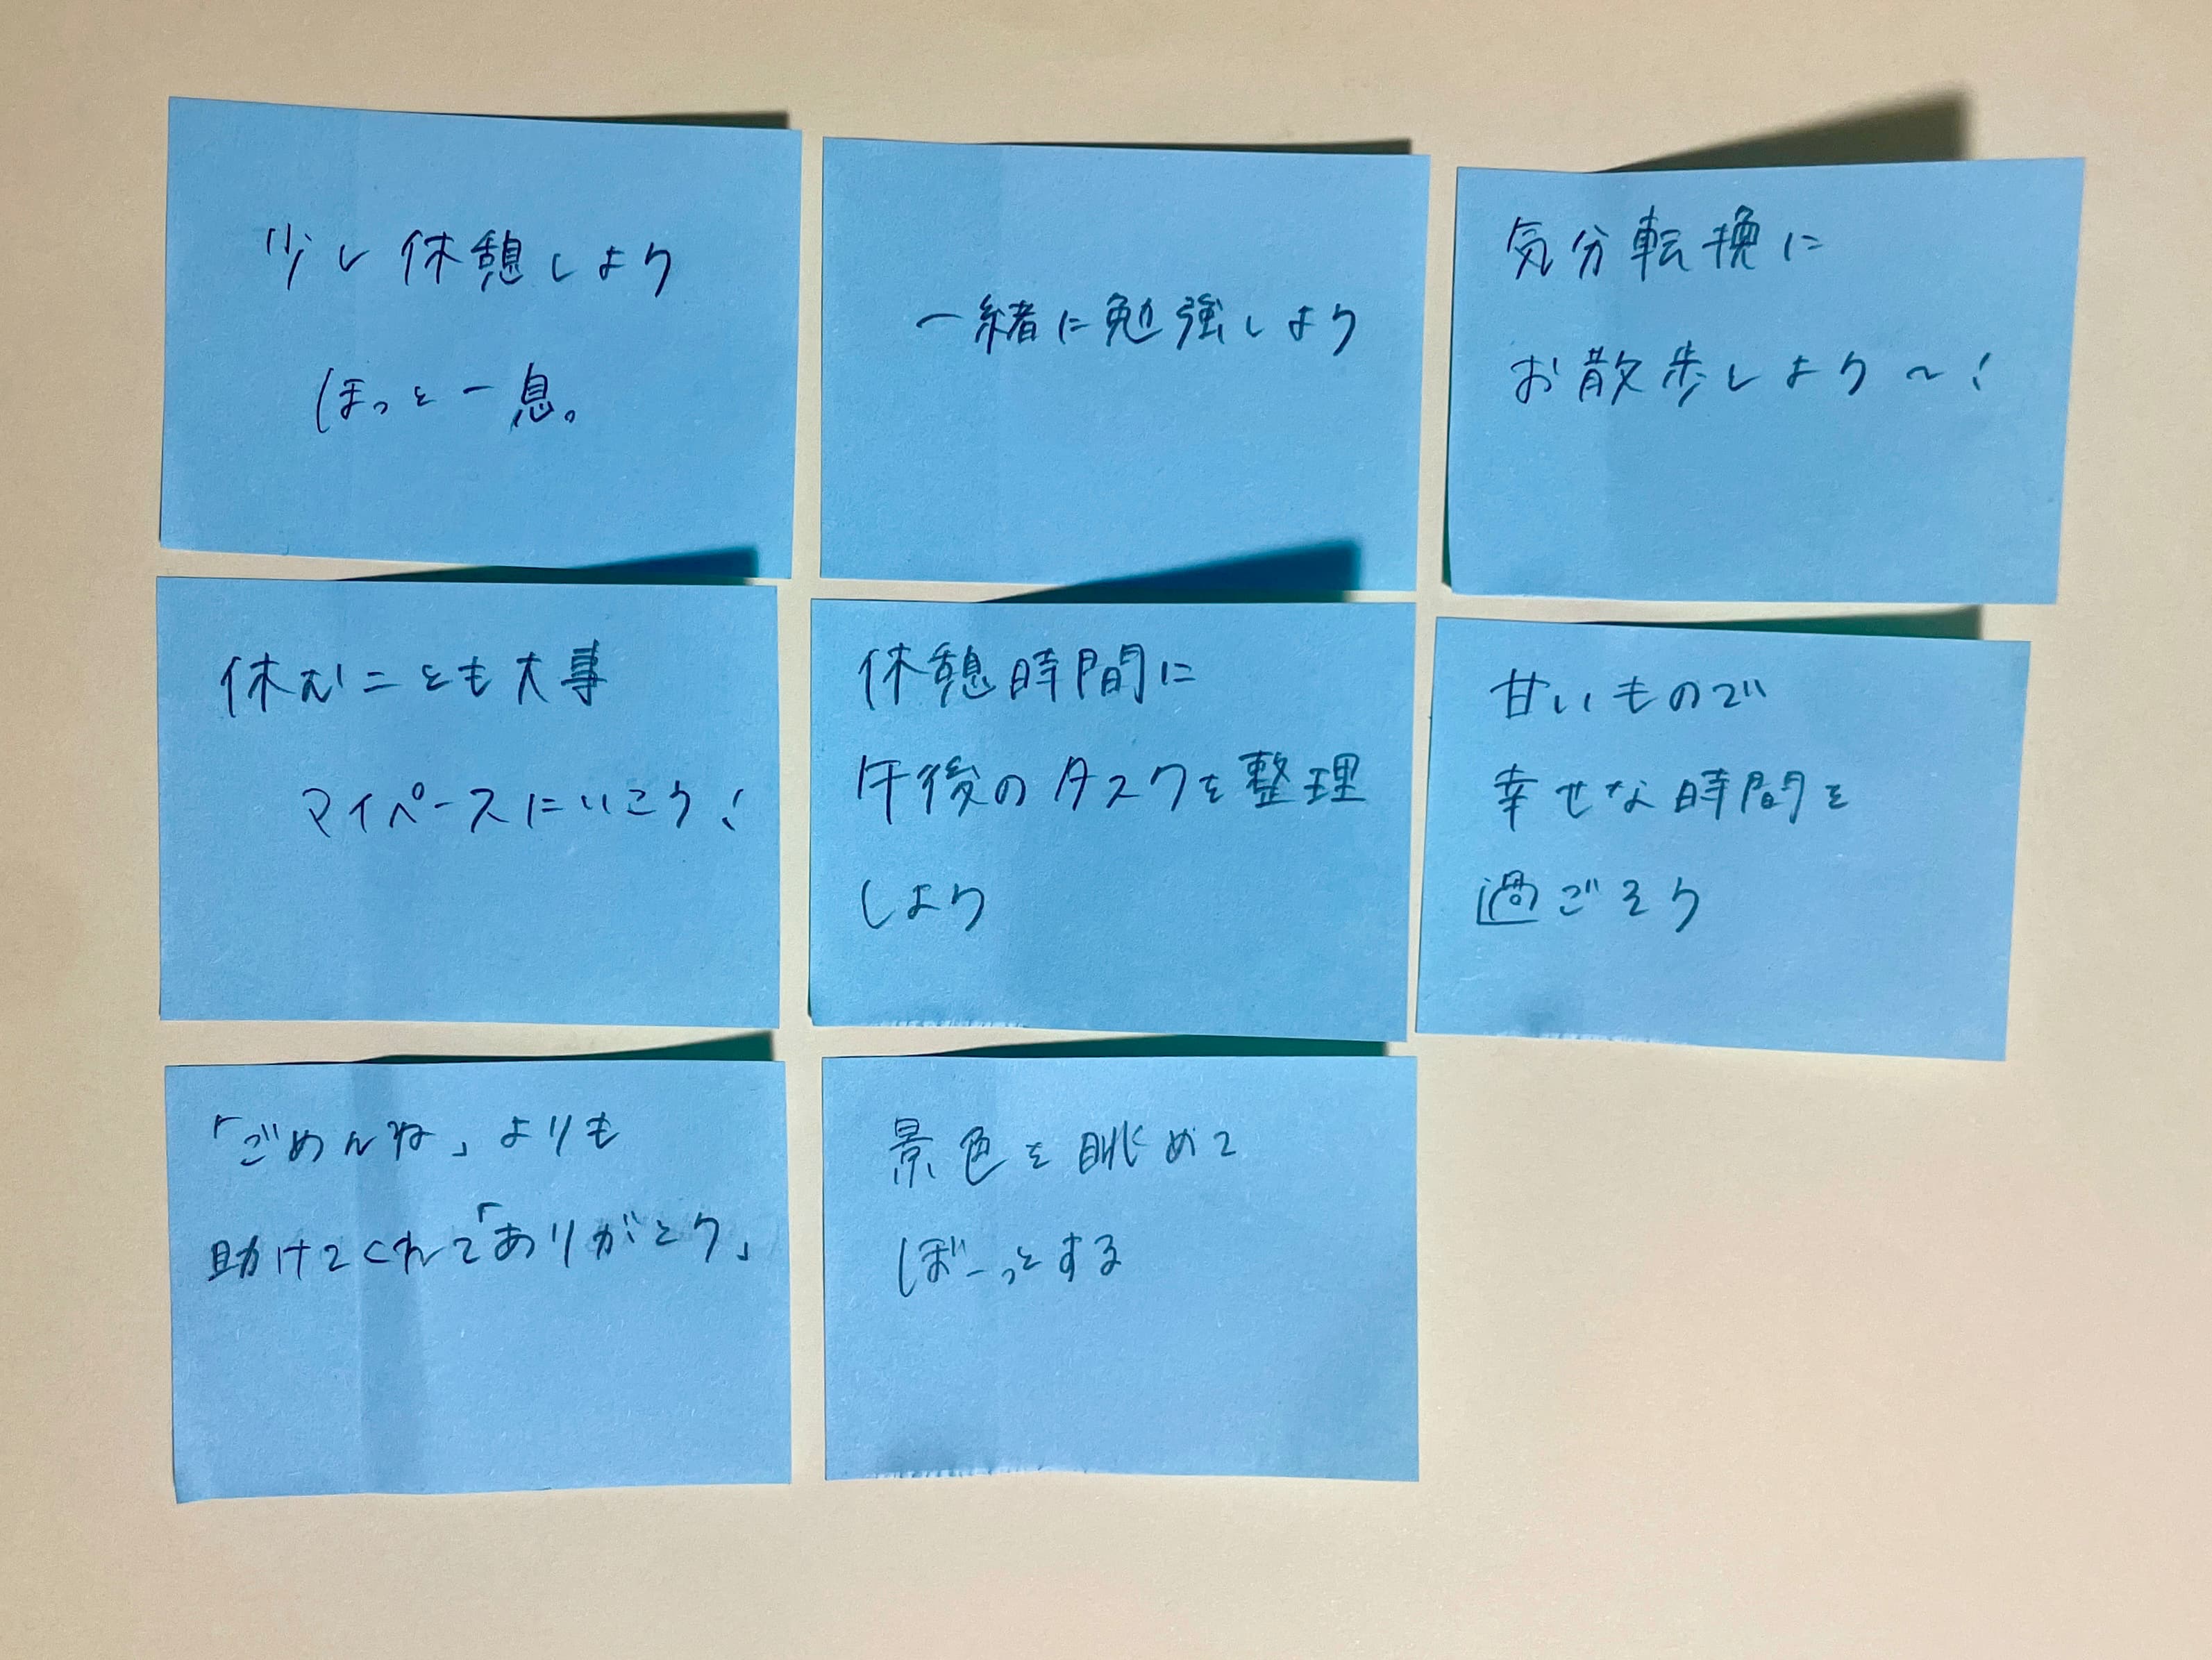 少し休憩しよう
ほっと一息。
一緒に勉強しよう
気分転換に
お散歩しよう〜!
休むことも大事
マイペースにいこう!
休憩時間に
午後のタスクを整理
しよう
甘いもので
幸せな時間を
過ごそう
「ごめんね」よりも
助けてくれて「ありがとう」
景色を眺めて
ぼーっとする